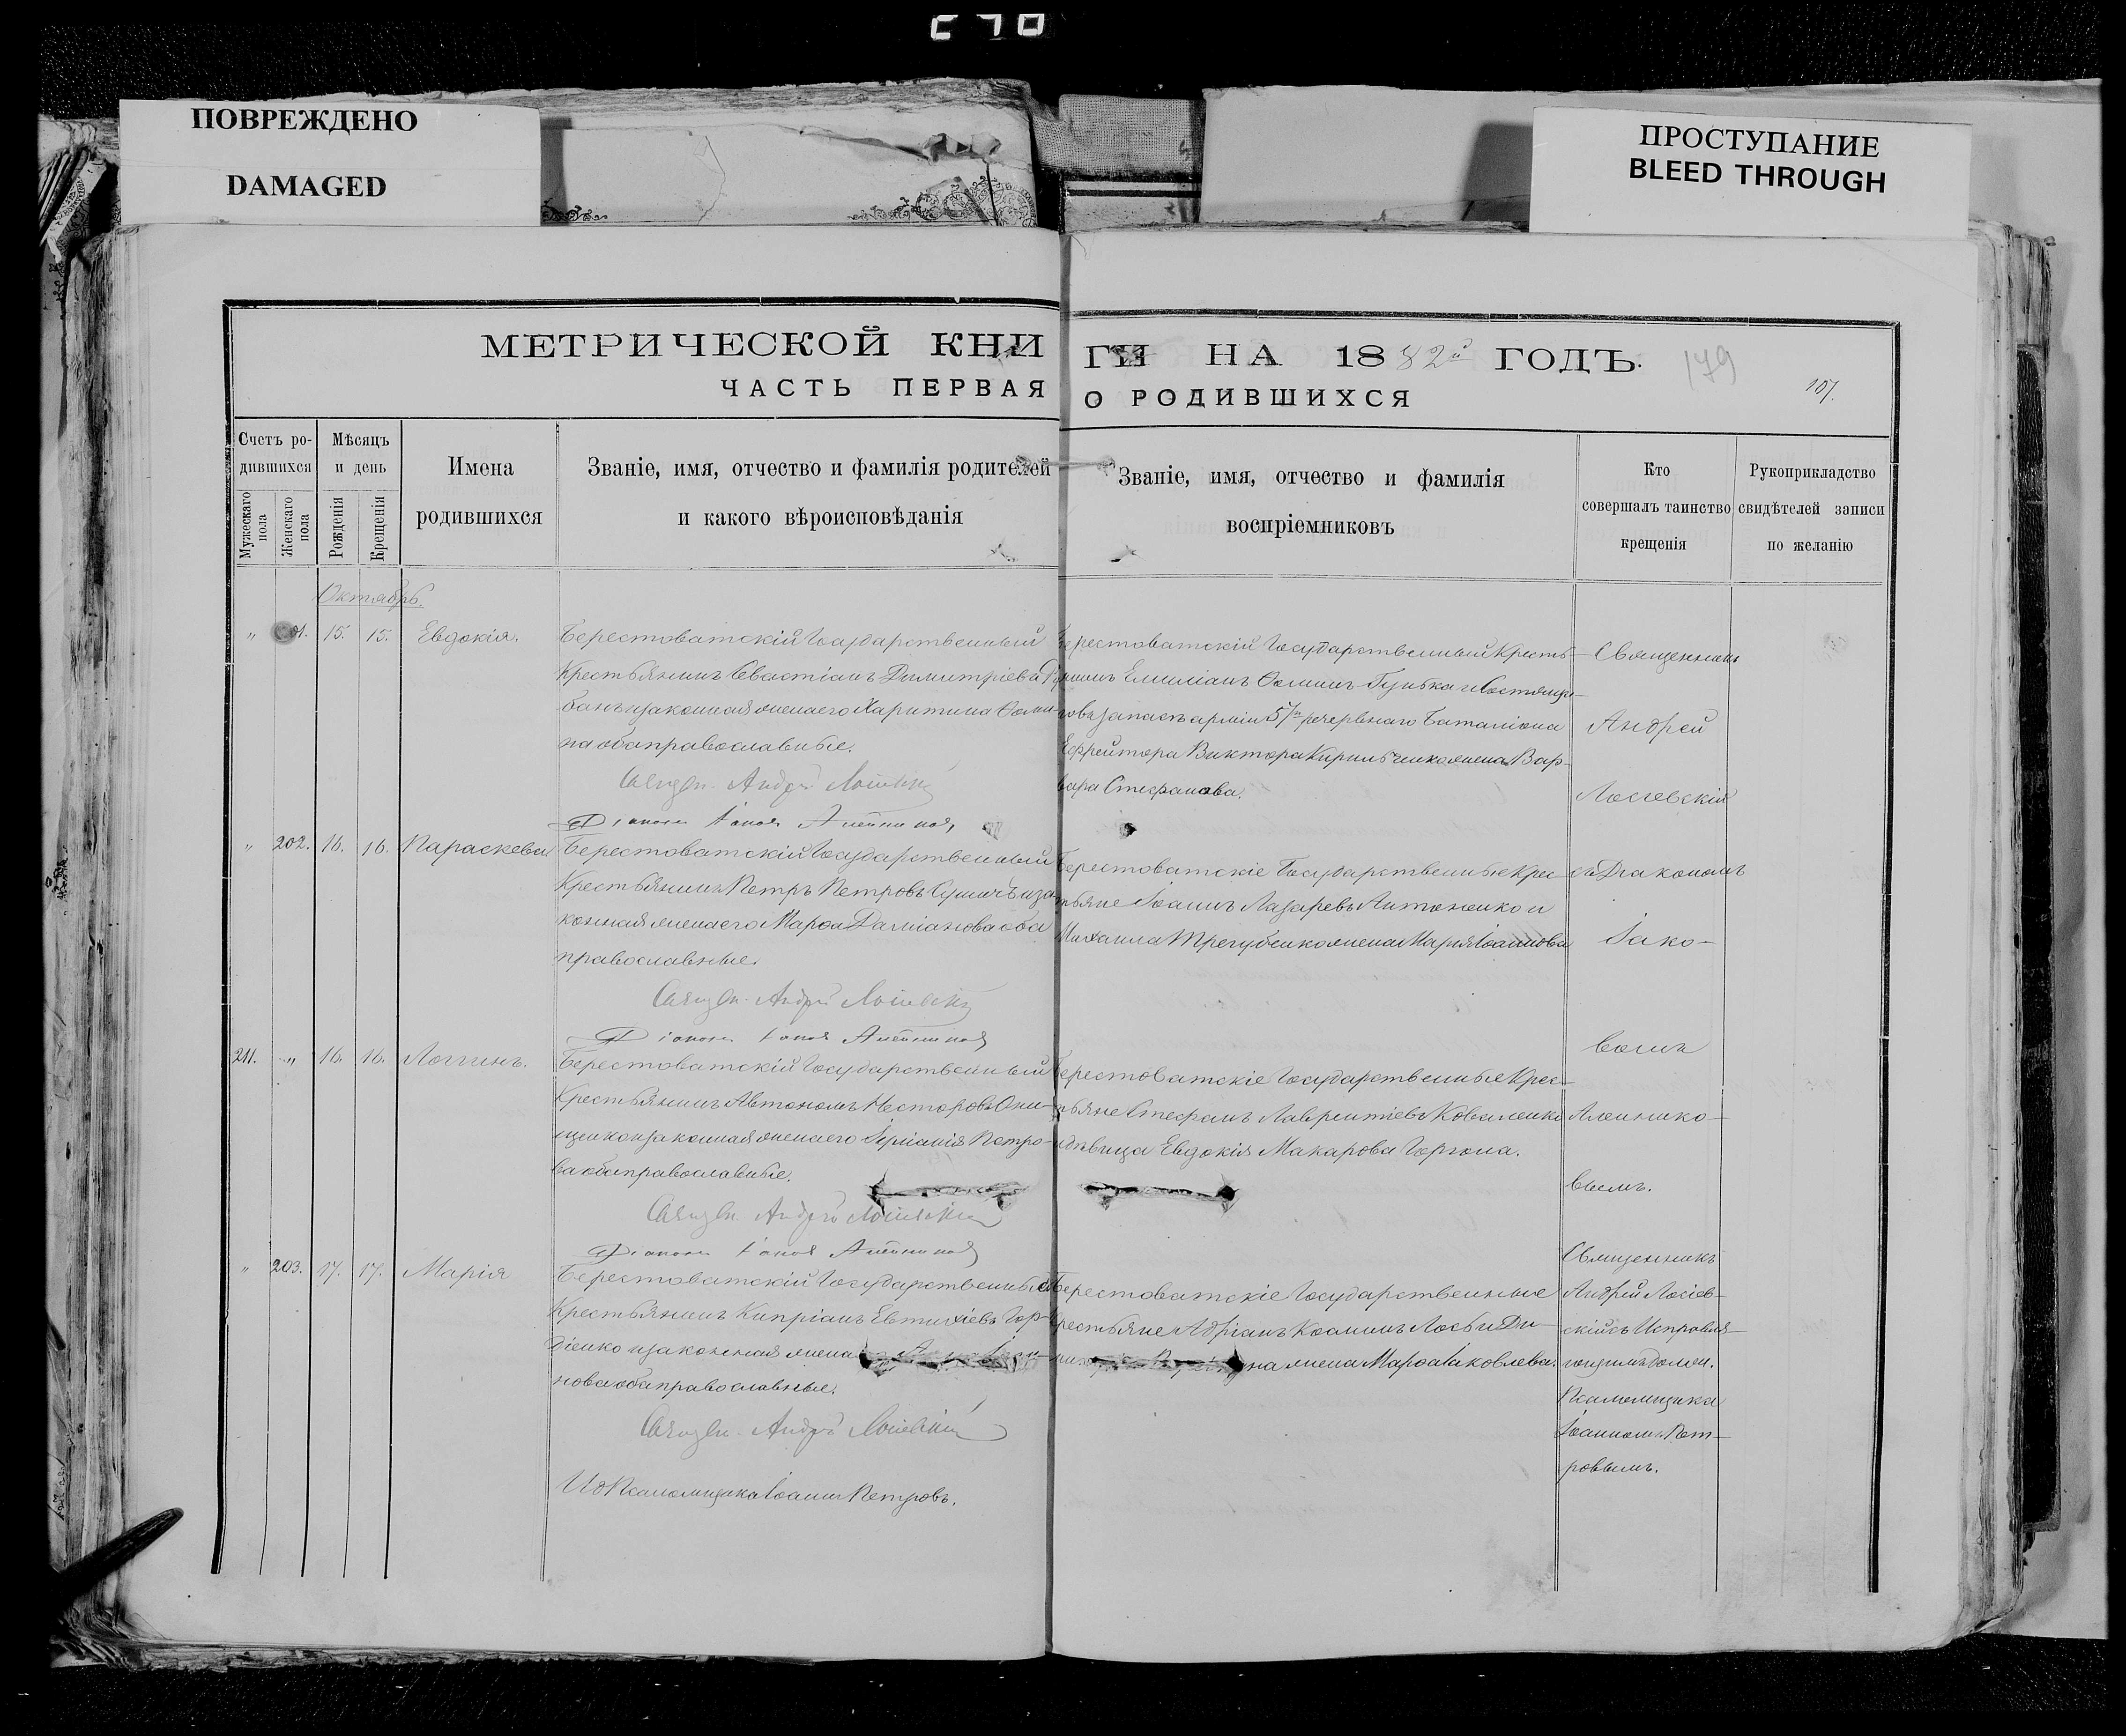 ПОВРЕЖДЕНО
DAMAGED
ПРОСТУПАНИЕ
BLEED THROUGH
МЕТРИЧЕСКОЙ КНИ
ГИ НА 1882й ГОДЪ.
179
107.
ЧАСТЬ ПЕРВАЯ
О РОДИВШИХСЯ
Счетъ ро-
дившихся
Мужескаго пола
Женскаго пола
Мѣсяцъ
и день
Рожденія
Крещенія
Имена
родившихся
Званіе, имя, отчество и фамилія родителей
и какого вѣроисповѣданія
Званіе, имя, отчество и фамилія
воспріемниковъ
Кто
совершалъ таинство
крещенія
Рукоприкладство
свидѣтелей записи
по желанію
Октябрь.
" 15. 15. Евдокія.
Берестоватскій Государственный
Крестьянинъ Севастіанъ Димитріевъ
законная жена его Харитина Ѳоми-
на оба православные.
Священ. Андрей Лосіевскій
Діаконъ Іаковъ
Берестоватскій Государственный Кресть-
Емиліанъ Ѳоминъ и Состоящаго
запасъ арміи 57го резервнаго Баталіона
Ефрейтора Виктора жена Вар-
вара Стефанова.
Священникъ
Андрей
Лосіевскій
" 202. 16. 16. Параскева
Берестоватскій Государственный
Крестьянинъ Петръ Петровъ и за-
конная жена его Марѳа Даміанова оба
православные.
Священ. Андрей Лосіевскій
Діаконъ Іаковъ
Берестоватскіе Государственные Крес-
тьяне Іоаннъ Лазаревъ Антоненко и
Михаила Трегубенко жена Марія Іоаннова
съ Діакономъ
Іако-
вомъ
211. " 16. 16. Логгинъ.
Берестоватскій Государственный
Крестьянинъ Автономъ Несторовъ Они-
щенко и законная жена его Петро-
ва оба православные.
Священ. Андрей Лосіевскій
Діаконъ Іаковъ
Берестоватскіе Государственные Крес-
тьяне Стефанъ Лаврентіевъ Коваленко
и дѣвица Евдокія Макарова
Алейнико-
вымъ.
" 203. 17. 17. Марія
Берестоватскій Государственный
Крестьянинъ Кипріанъ Евтихіевъ Гор-
діенко и законная жена
нова оба православные.
Священ. Андрей Лосіевскій
Ид Псаломщика Іоаннъ Петровъ.
Берестоватскіе Государственные
Крестьяне Адріанъ Косминъ Лось и Ди-
на жена Марѳа Іаковлева.
Священникъ
Андрей Лосіев-
скій съ Исправля-
ющимъ должн.
Псаломщика
Іоанномъ Пет-
ровымъ.